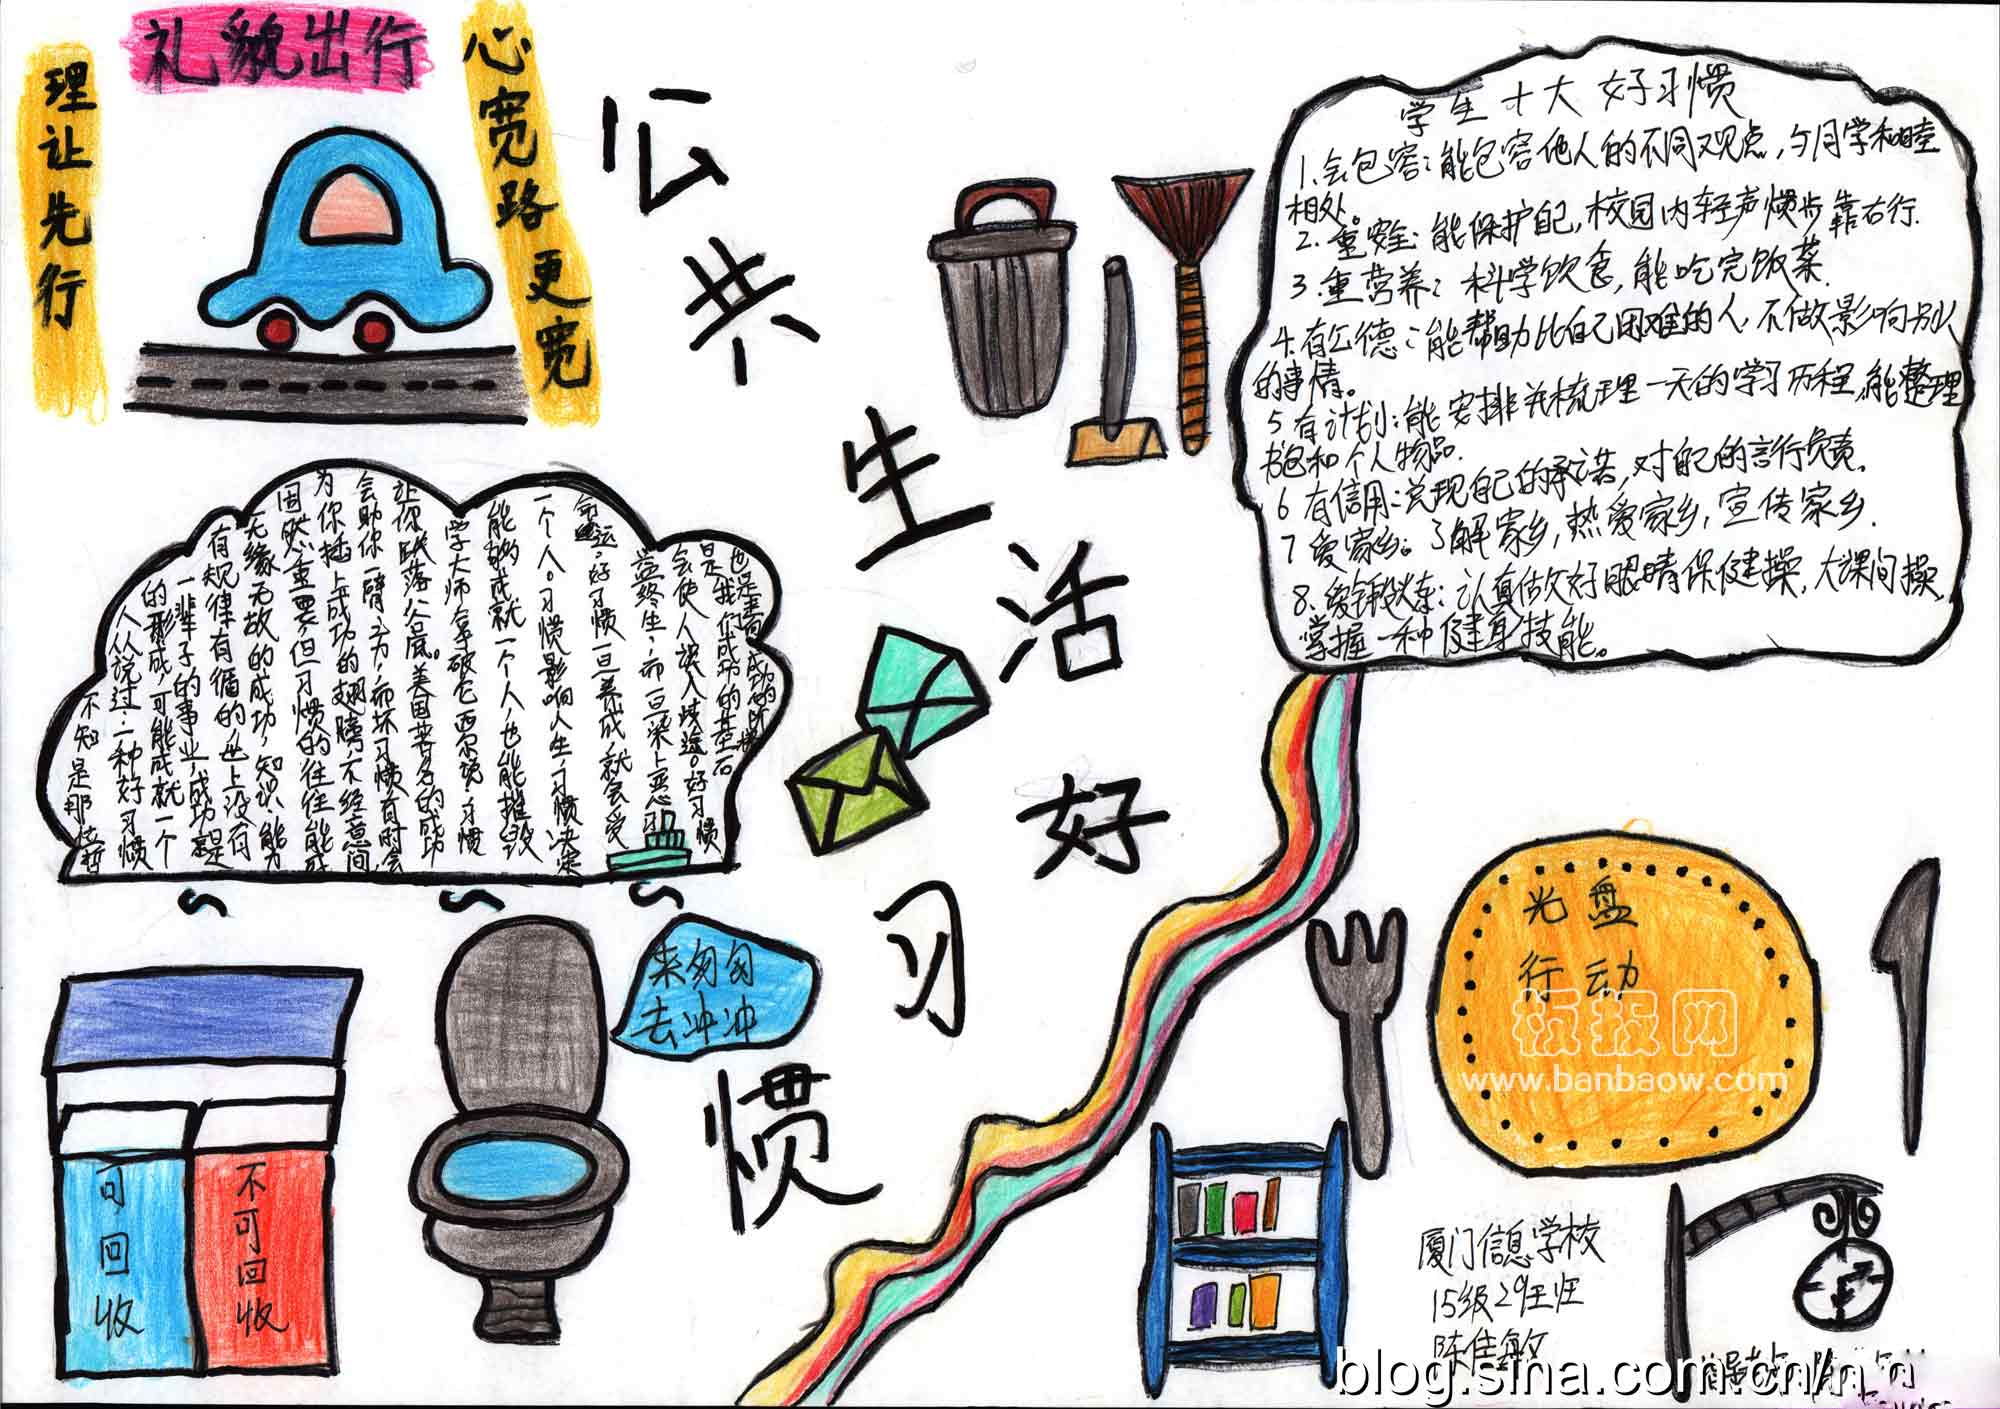 礼貌出行
理让先行
心宽路更宽
公共生活好习惯
学生十大好习惯
1.会包容：能包容他人的不同观点，与同学和睦
相处。
2.重安全：能保护自己，校园内轻声慢步靠右行.
3.重营养：科学饮食，能吃完饭菜.
4.有公德：能帮助比自己困难的人.不做影响别人
的事情。
5有计划：能安排并梳理一天的学习历程，能整理
书包和个人物品.
6有信用：兑现自己的承诺，对自己的言行负责.
7爱家乡。了解家乡，热爱家乡，宣传家乡.
8.爱锻炼：认真做好眼睛保健操，大课间操，
掌握一种健身技能。
不知是那位哲
人从说过.一种好习惯
的形成，可能成就一个
一辈子的事业，成功就是
有规律有循的，世上没有
无缘无故的成功，知识、能力
固然重要，但习惯的往往能成
为你插上成功的翅膀，不经意间，
会助你一臂之力，而坏习惯有时会
让你跌落谷底。美国著名的成功
学大师拿破仑西尔说，习惯
能够成就一个人，也能摧毁
一个人。习惯影响人生，习惯决定
命运，好习惯一旦养成，就会受
益终生，而一旦染上恶习
会使人误入歧途。好习惯
是我们成功的基石
来匆匆
去冲冲
可回收
不可回收
光盘
行动
板报网
www.banbaow.com
厦门信息学校
15级29班
陈佳敏
blog.sina.com.cn